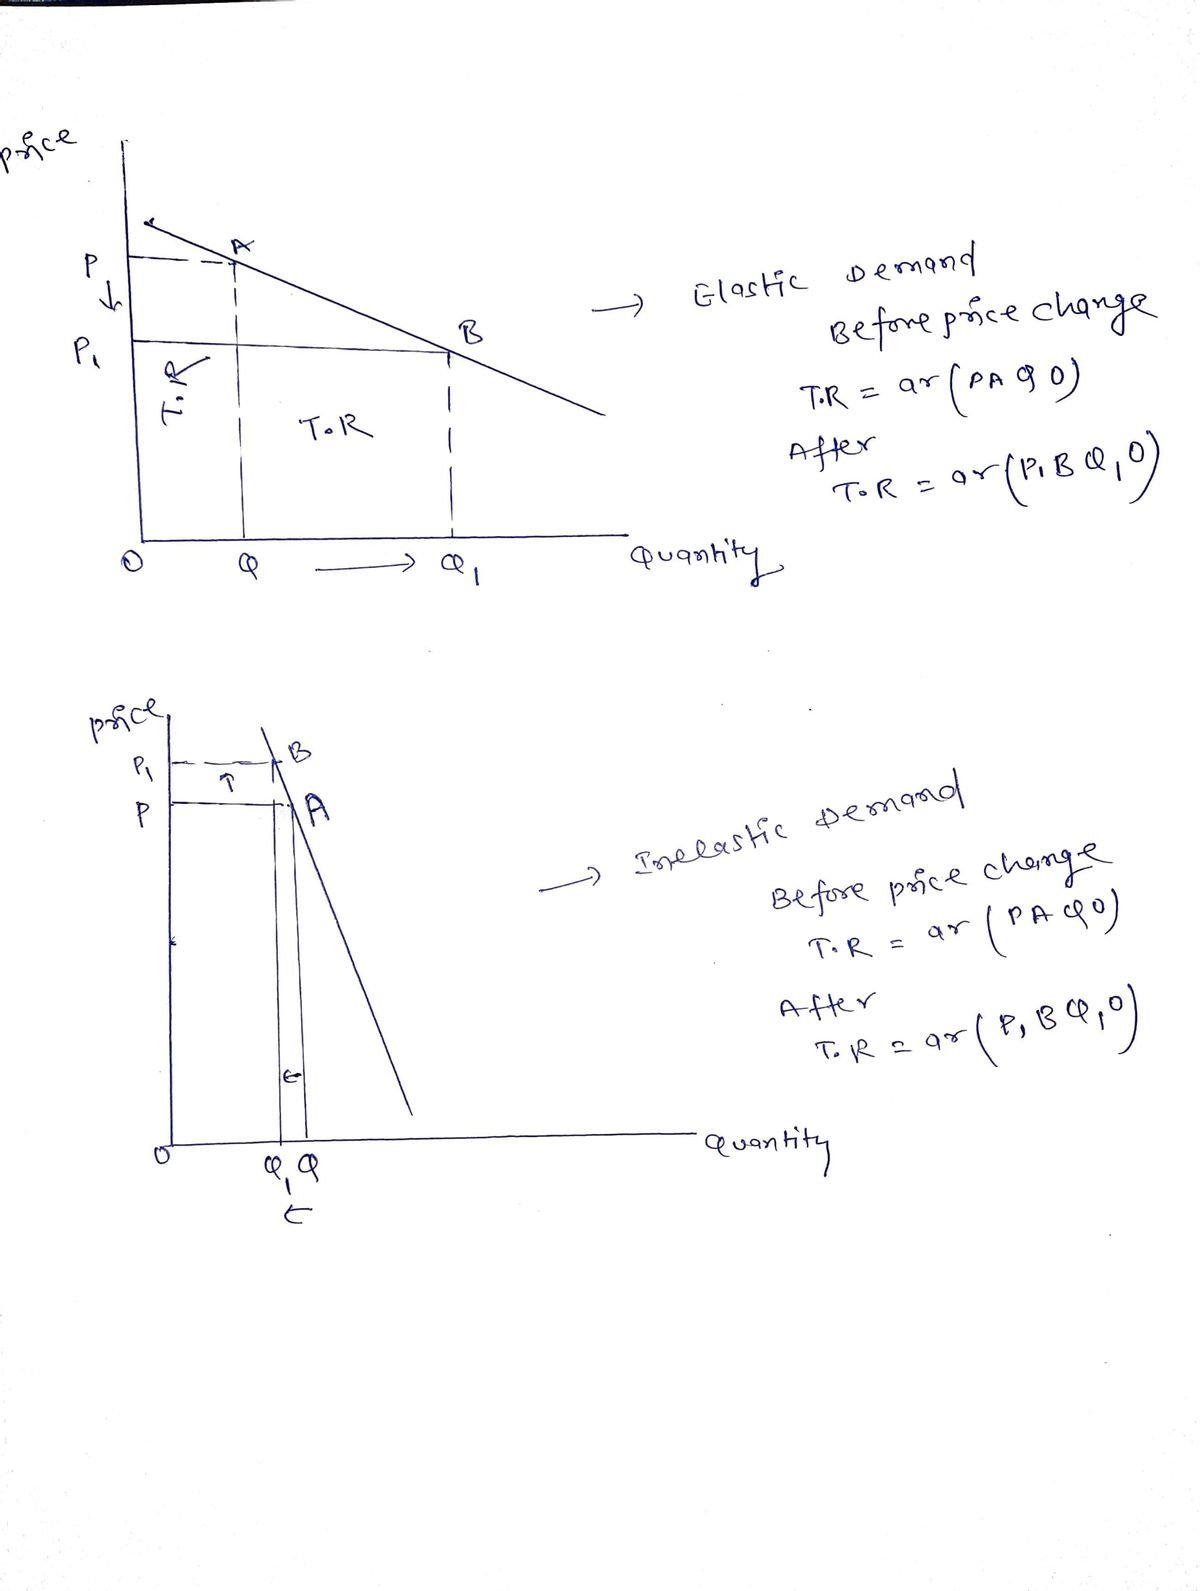 price
P
A
P₁
B
T.R
T.R
O
Q
Q₁
Quantity
→ Elastic Demand
Before price change
T.R = ar (PAQO)
After
T.R = ar (P₁BQ₁O)
price
P₁
B
↑
P
A
←
O
Q₁ Q
←
Quantity
→ Inelastic Demand
Before price change
T.R = ar (PAQO)
After
T.R = ar (P₁BQ₁O)